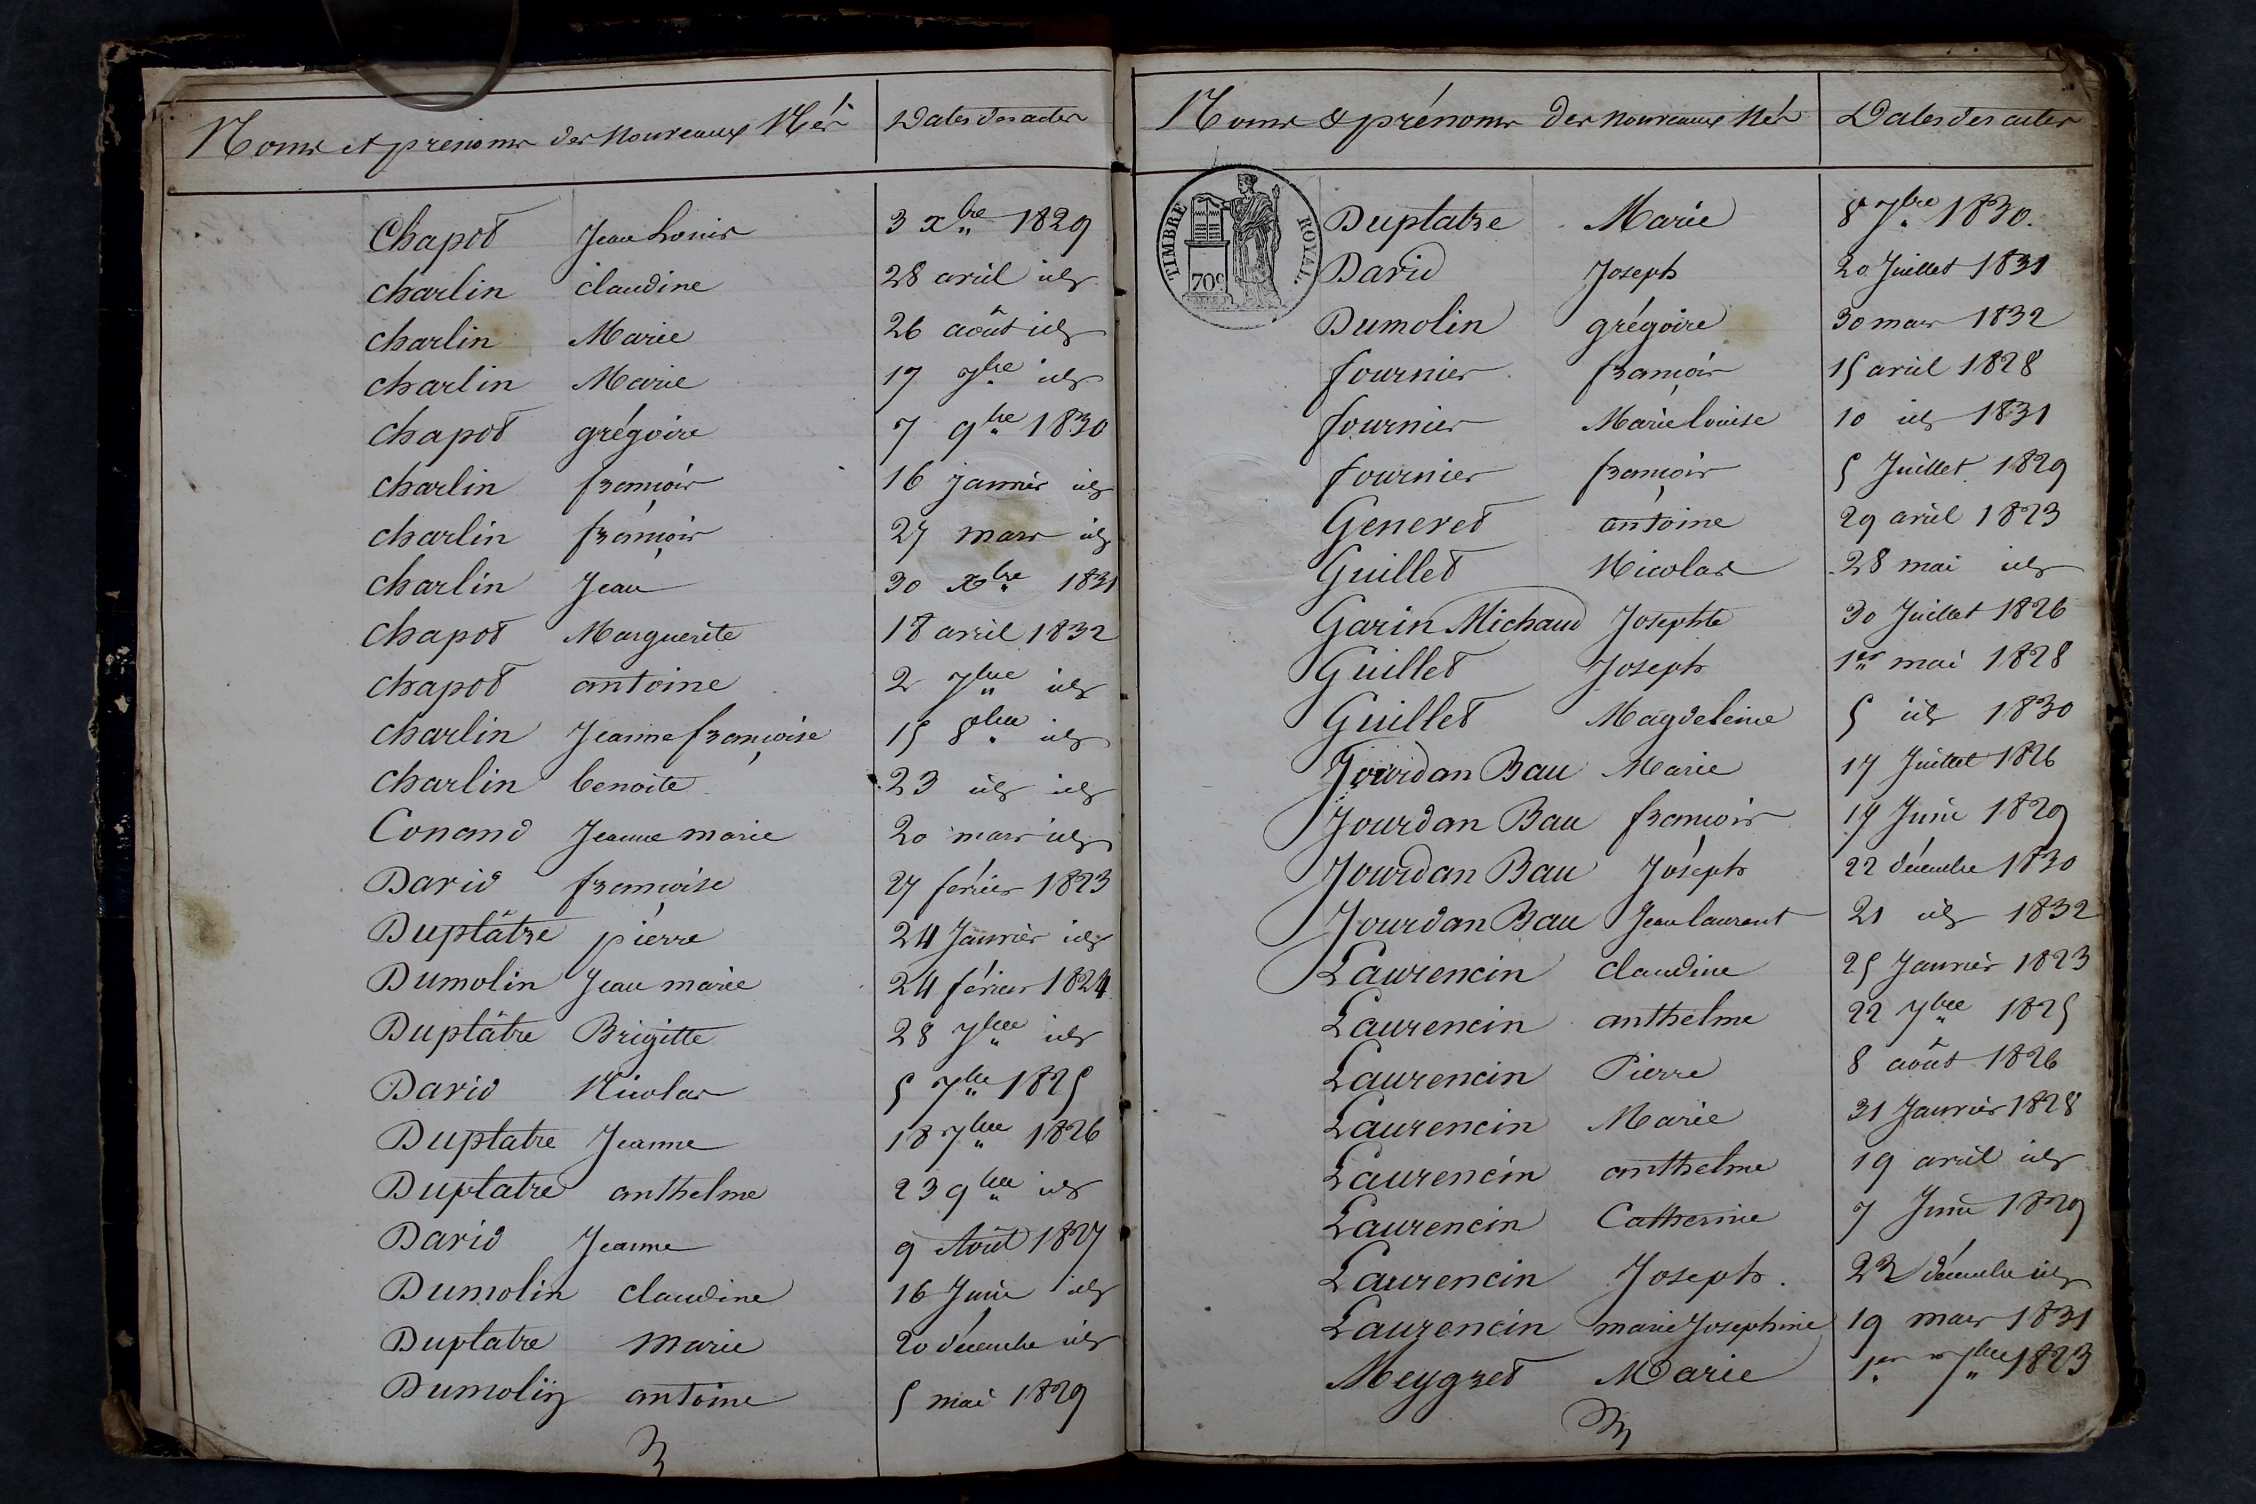 Noms et prenoms des Nouveaux Nés Dates des actes
Chapot Jean Louis 3 xbre 1829
charlin claudine 28 avril id
charlin Marie 26 août id
charlin Marie 17 7bre id
chapot grégoire 7 9bre 1830
charlin françois 16 janvier id
charlin françois 27 mars id
charlin Jean 30 xbre 1831
chapot Marguerite 18 avril 1832
chapot antoine 2 7bre id
charlin Jeanne françoise 15 8bre id
charlin benoite 23 id id
Conand Jeanne marie 20 mars id
David françoise 27 février 1823
Duplâtre pierre 24 Janvier id
Dumolin Jean marie 24 février 1824
Duplâtre Brigitte 28 7bre id
David Nicolas 5 7bre 1825
Duplatre Jeanne 18 7bre 1826
Duplatre anthelme 23 9bre id
David Jeanne 9 Août 1827
Dumolin claudine 16 Juin id
Duplatre marie 20 décembre id
Dumolin antoine 5 mai 1829
Noms & prénoms des nouveaux Nés Dates des actes
TIMBRE ROYAL.
70c.
Duplatre Marie 8 7bre 1830.
David Joseph 20 Juillet 1831
Dumolin grégoire 30 mars 1832
fournier françois 15 avril 1828
fournier Marie louise 10 id 1831
fournier françois 5 Juillet 1829
Generet antoine 29 avril 1823
Guillet Nicolas 28 mai id
Garin Michaud Josephte 30 Juillet 1826
Guillet Joseph 1er mai 1828
Guillet Magdeleine 5 id 1830
Jourdan Bau Marie 17 Juillet 1826
Jourdan Bau françois 19 Juin 1829
Jourdan Bau Joseph 22 décembre 1830
Jourdan Bau Jean laurent 21 id 1832
Laurencin claudine 25 Janvier 1823
Laurencin anthelme 22 7bre 1825
Laurencin Pierre 8 août 1826
Laurencin Marie 31 Janvier 1828
Laurencin anthelme 19 avril id
Laurencin Catherine 7 Juin 1829
Laurencin Joseph. décembre id
Laurencin marie Josephine 19 mars 1831
Meygret Marie 1er 7bre 1823